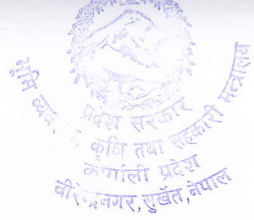 प्रदेश सरकार
भूमि व्यव कृषि तथा सहकारी मन्त्रालय
कर्णाली प्रदेश
वीरेन्द्रनगर, सुर्खेत, नेपाल